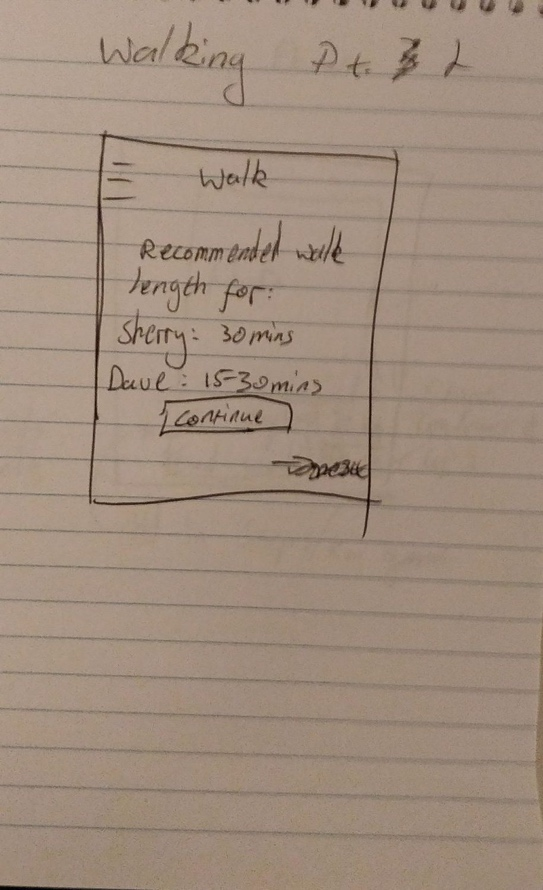 Walking Pt.
Walk
Recommended walk
length for:
Sherry: 30 mins
Dave: 15-30 mins
Continue